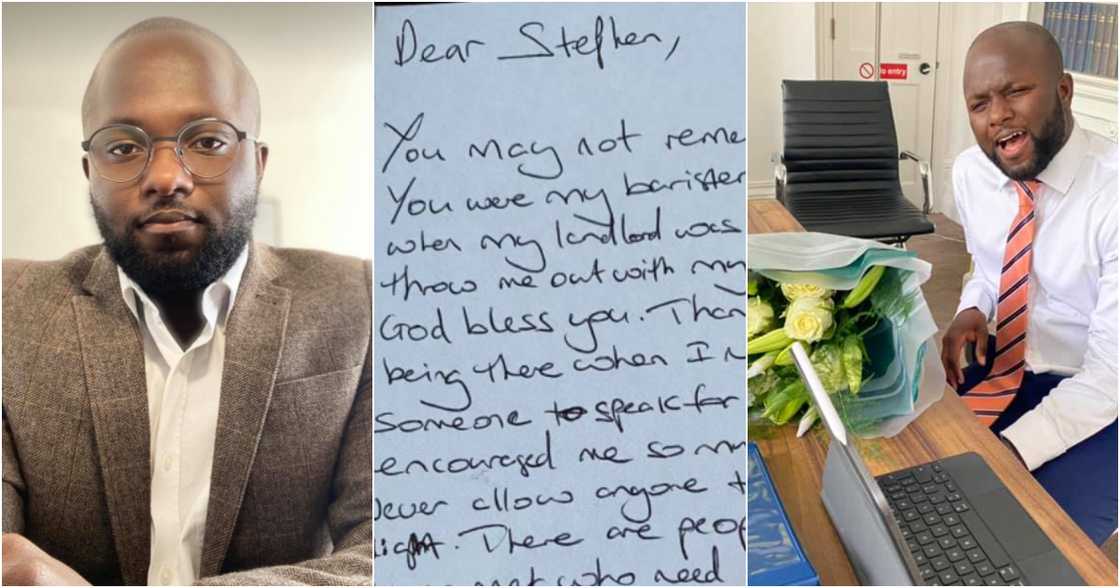 Dear Stephen,
You may not reme
You were my barister
when my landlord was
throw me out with my
God bless you. Than
being there when I n
someone to speak for
encouraged me so m
ever allow anyone t
light. There are peop
met who need
entry